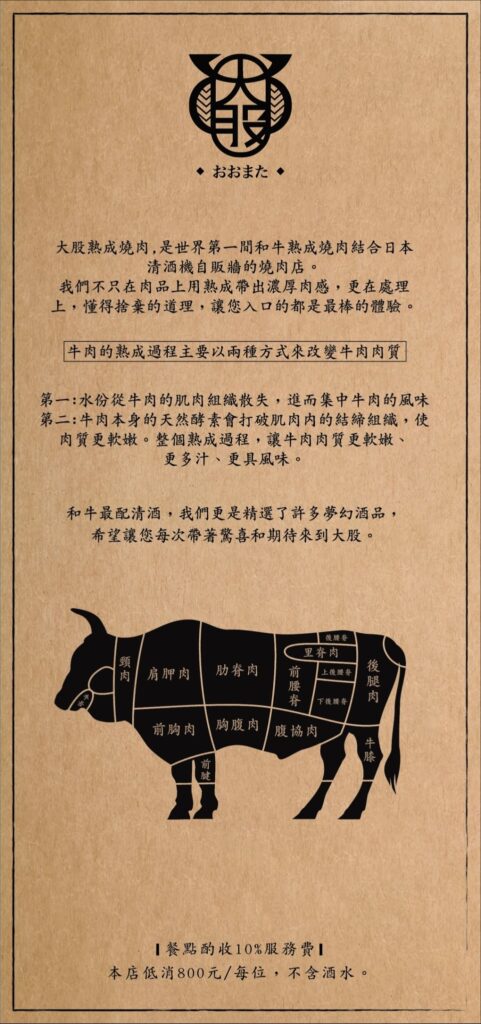 大股
◆ おおまた ◆
大股熟成燒肉,是世界第一間和牛熟成燒肉結合日本
清酒機自販牆的燒肉店。
我們不只在肉品上用熟成帶出濃厚肉感,更在處理
上,懂得捨棄的道理,讓您入口的都是最棒的體驗。
牛肉的熟成過程主要以兩種方式來改變牛肉肉質
第一:水份從牛肉的肌肉組織散失,進而集中牛肉的風味
第二:牛肉本身的天然酵素會打破肌肉內的結締組織,使
肉質更軟嫩。整個熟成過程,讓牛肉肉質更軟嫩、
更多汁、更具風味。
和牛最配清酒,我們更是精選了許多夢幻酒品,
希望讓您每次帶著驚喜和期待來到大股。
頸肉
肩胛肉
肋脊肉
前腰脊
後腰脊
里脊肉
上後腰脊
下後腰脊
後腿肉
前胸肉
胸腹肉
腹協肉
牛膝
前腱
餐點酌收10%服務費
本店低消800元/每位,不含酒水。